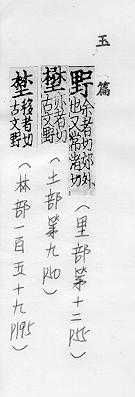 玉篇
野余者切郊外也又常渚切
（里部第十二P55）
壄亦者切古文野
（土部第九P10）
埜移者切古文野
（林部一百五十九P195）